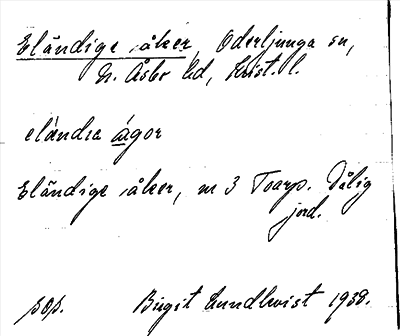 Eländige åker, Oderljunga sn,
N. Åsbo hd, Krist. l.
eländia ågor
Eländige åker, nr 3 Toarp. Dålig
jord.
sop. Birgit Lundkvist 1938.